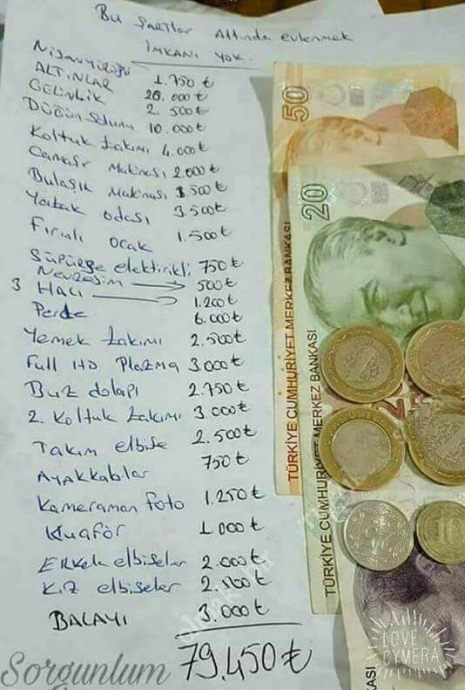 Bu şartlar Altında evlenmek
İMKANI YOK.
Nişanyüzüğü 1.750 ₺
ALTINLAR 20.000 ₺
Gelinlik 2.500 ₺
Düğün Salunu 10.000 ₺
Koltuk takımı 4.000 ₺
Çamaşır Makinası 2.000 ₺
Bulaşık Makinası 1.500 ₺
Yatak odası 3.500 ₺
Fırınlı Ocak 1.500 ₺
Süpürge elektirikli 750 ₺
Nevresim → 500 ₺
3 HALI → 1.200 ₺
Perde 6.000 ₺
Yemek takımı 2.500 ₺
Full HD Plazma 3.000 ₺
Buz dolapı 2.750 ₺
2. Koltuk takımı 3.000 ₺
Takım elbise 2.500 ₺
Ayakkabılar 750 ₺
Kameraman foto 1.250 ₺
Kuaför 1.000 ₺
Erkek elbiseler 2.000 ₺
Kız elbiseler 2.100 ₺
BALAYI 3.000 ₺
79.450 ₺
50
TÜRKİYE CUMHURİYET MERKEZ BANKASI
20
TÜRKİYE CUMHURİYET MERKEZ BANKASI
10
KASI
LOVE
CYMERA
Sorgunlum